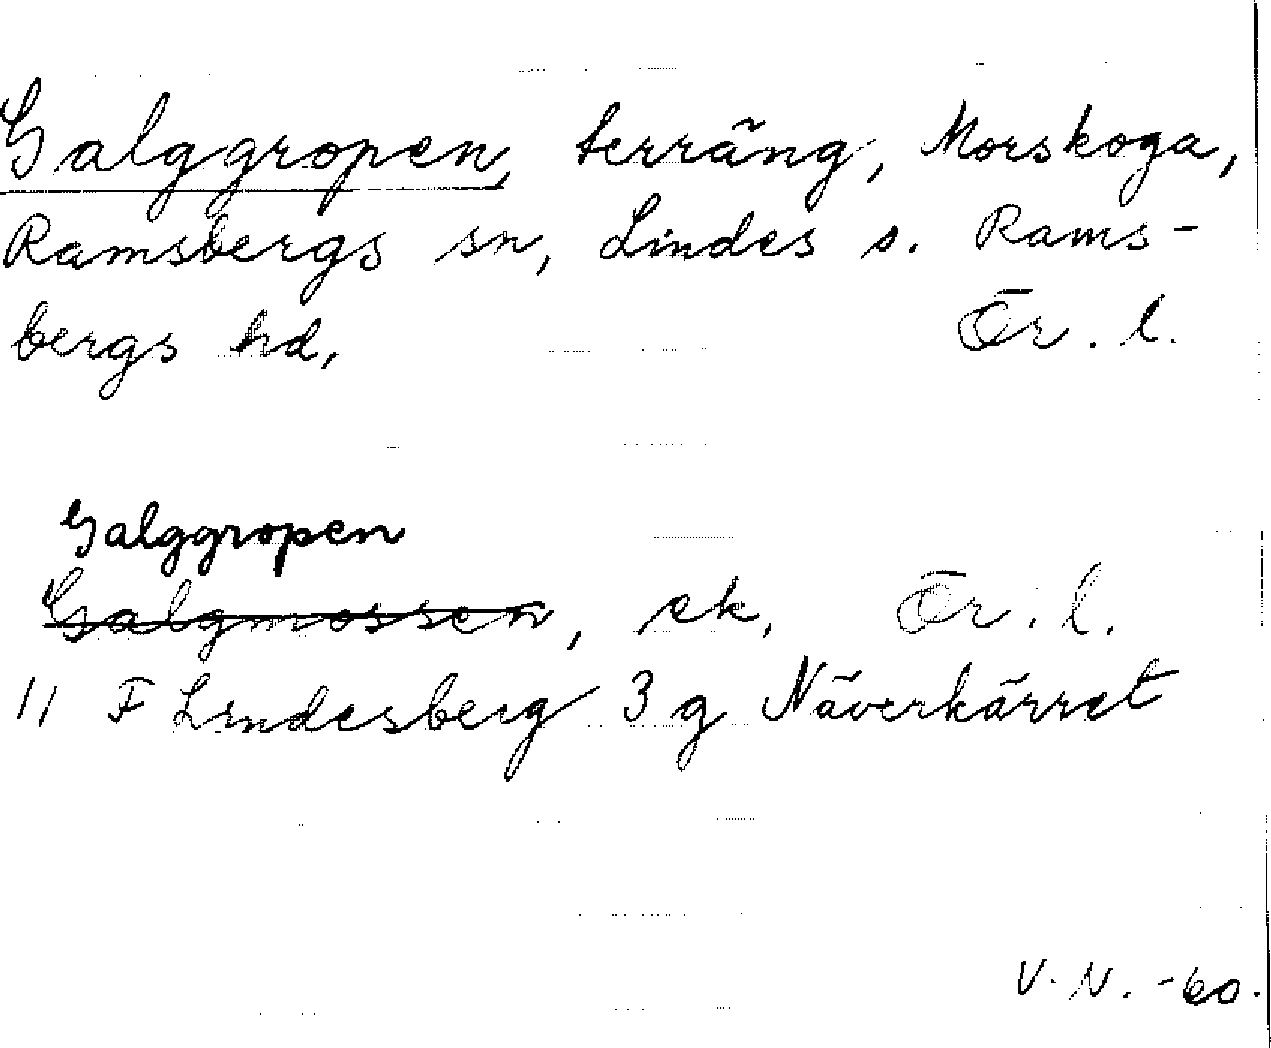 Galggropen, terräng, Morskoga,
Ramsbergs sn, Lindes o. Rams-
bergs hd, Ör. l.
Galggropen
Galgmossen, ek, Ör. l.
11 F Lindesberg 3 g Näverkärret
V. N. -60.